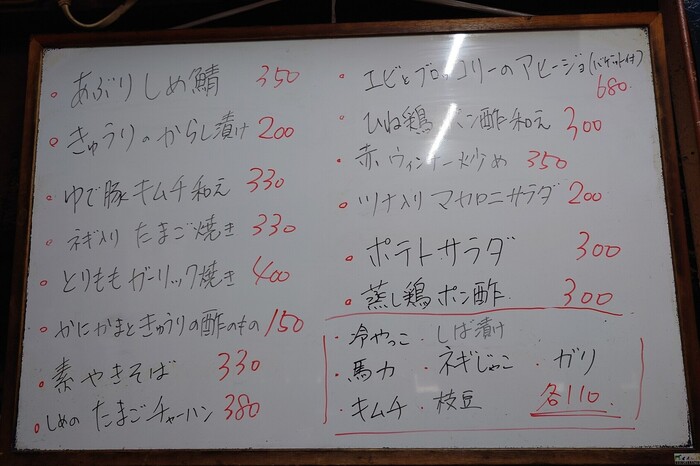 ・あぶりしめ鯖 350
・きゅうりのからし漬け 200
・ゆで豚キムチ和え 330
・ネギ入りたまご焼き 330
・とりももガーリック焼き 400
・かにかまときゅうりの酢のもの 150
・素やきそば 330
・しめのたまごチャーハン 380
・エビとブロッコリーのアヒージョ(バゲット付)
680
・ひね鶏ポン酢和え 300
・赤ウィンナー炒め 350
・ツナ入りマカロニサラダ 200
・ポテトサラダ 300
・蒸し鶏ポン酢 300
・冷やっこ ・しば漬け
・馬力 ・ネギじゃこ ・ガリ
・キムチ ・枝豆 各110